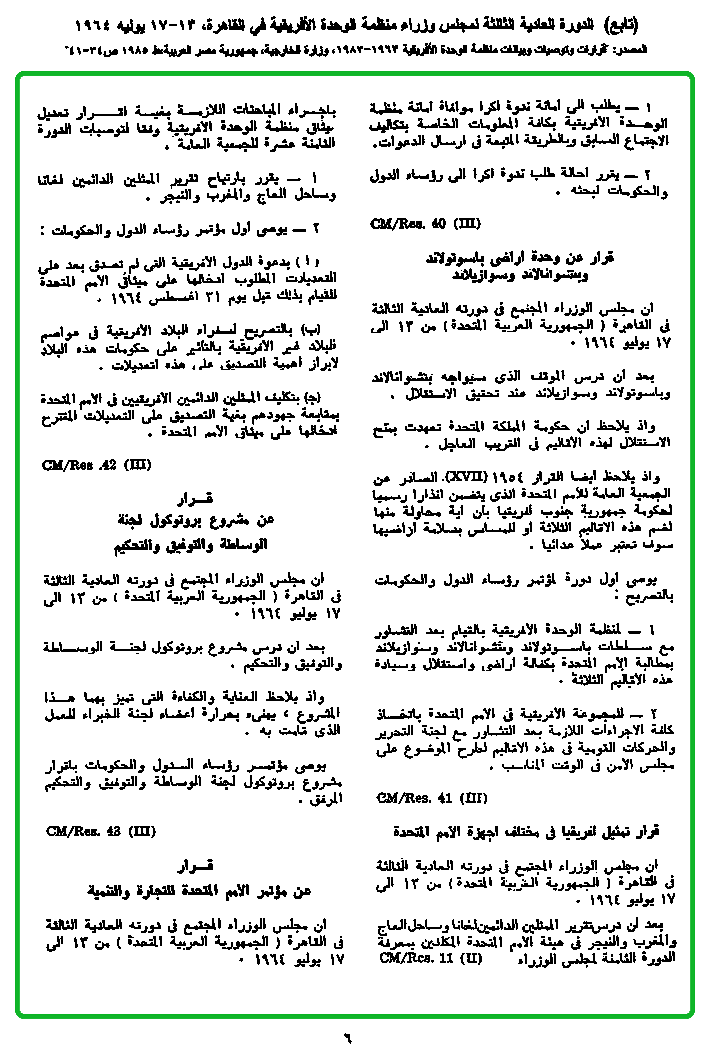 (تابع) الدورة العادية الثالثة لمجلس وزراء منظمة الوحدة الأفريقية في القاهرة، ١٣-١٧ يوليه ١٩٦٤
المصدر: "قرارات وتوصيات وبيانات منظمة الوحدة الأفريقية ١٩٦٣-١٩٨٣، وزارة الخارجية، جمهورية مصر العربية، ط ١٩٨٥ ص ٣٤-٤١"
١ — يطلب الى امانة ندوة اكرا موافاة امانة منظمة
الوحدة الأفريقية بكافة المعلومات الخاصة بتكاليف
الاجتماع السابق وبالطريقة المتبعة فى ارسال الدعوات.
٢ — يقرر احالة طلب ندوة اكرا الى رؤساء الدول
والحكومات لبحثه .
CM/Res. 40 (III)
قرار عن وحدة اراضى باسوتولاند
وبتشوانالاند وسوازيلاند
ان مجلس الوزراء المجتمع فى دورته العادية الثالثة
فى القاهرة ( الجمهورية العربية المتحدة ) من ١٣ الى
١٧ يوليو ١٩٦٤ .
بعد ان درس الموقف الذى سيواجه بتشوانالاند
وباسوتولاند وسوازيلاند عند تحقيق الاستقلال .
واذ يلاحظ ان حكومة المملكة المتحدة تعهدت بمنح
الاستقلال لهذه الاقاليم فى القريب العاجل .
واذ يلاحظ ايضا القرار ١٩٥٤ (XVII). الصادر عن
الجمعية العامة للأمم المتحدة الذى يتضمن انذارا رسميا
لحكومة جمهورية جنوب افريقيا بأن اية محاولة منها
لضم هذه الاقاليم الثلاثة او للمساس بسلامة اراضيها
سوف تعتبر عملا عدائيا .
يوصى أول دورة لمؤتمر رؤساء الدول والحكومات
بالتصريح :
١ — لمنظمة الوحدة الأفريقية بالقيام بعد التشاور
مع سلطات باسوتولاند وبتشوانالاند وسوازيلاند
بمطالبة الأمم المتحدة بكفالة اراضى واستقلال وسيادة
هذه الاقاليم الثلاثة .
٢ — للمجموعة الأفريقية فى الأمم المتحدة باتخاذ
كافة الاجراءات اللازمة بعد التشاور مع لجنة التحرير
والحركات القومية فى هذه الاقاليم لطرح الموضوع على
مجلس الأمن فى الوقت المناسب .
CM/Res. 41 (III)
قرار تمثيل افريقيا فى مختلف اجهزة الأمم المتحدة
ان مجلس الوزراء المجتمع فى دورته العادية الثالثة
فى القاهرة ( الجمهورية العربية المتحدة ) من ١٣ الى
١٧ يوليو ١٩٦٤ .
بعد ان درس تقرير الممثلين الدائمين لغانا وساحل العاج
والمغرب والنيجر فى هيئة الأمم المتحدة المكلفين بمعرفة
الدورة الثامنة لمجلس الوزراء CM/Res. 11 (II)
باجراء المباحثات اللازمة بغية اقرار تعديل
ميثاق منظمة الوحدة الأفريقية وفقا لتوصيات الدورة
الثامنة عشرة للجمعية العامة .
١ — يقرر بارتياح تقرير الممثلين الدائمين لغانا
وساحل العاج والمغرب والنيجر .
٢ — يوصى أول مؤتمر رؤساء الدول والحكومات :
(أ) بدعوة الدول الأفريقية التى لم تصدق بعد على
التعديلات المطلوب ادخالها على ميثاق الأمم المتحدة
للقيام بذلك قبل يوم ٣١ اغسطس ١٩٦٤ .
(ب) بالتصريح لسفراء البلاد الأفريقية فى عواصم
البلاد غير الأفريقية بالتأثير على حكومات هذه البلاد
لابراز أهمية التصديق على هذه التعديلات .
(ج) بتكليف الممثلين الدائمين الأفريقيين فى الأمم المتحدة
بمتابعة جهودهم بغية التصديق على التعديلات المقترح
ادخالها على ميثاق الأمم المتحدة.
CM/Res .42 (III)
قرار
عن مشروع بروتوكول لجنة
الوساطة والتوفيق والتحكيم
ان مجلس الوزراء المجتمع فى دورته العادية الثالثة
فى القاهرة ( الجمهورية العربية المتحدة ) من ١٣ الى
١٧ يوليو ١٩٦٤ .
بعد ان درس مشروع بروتوكول لجنة الوساطة
والتوفيق والتحكيم .
واذ يلاحظ العناية والكفاءة التى تميز بهما هذا
المشروع ، يهنىء بحرارة أعضاء لجنة الخبراء للعمل
الذى قامت به .
يوصى مؤتمر رؤساء الدول والحكومات باقرار
مشروع بروتوكول لجنة الوساطة والتوفيق والتحكيم
المرفق .
CM/Res. 43 (III)
قرار
عن مؤتمر الأمم المتحدة للتجارة والتنمية
ان مجلس الوزراء المجتمع فى دورته العادية الثالثة
فى القاهرة ( الجمهورية العربية المتحدة ) من ١٣ الى
١٧ يوليو ١٩٦٤ .
٦